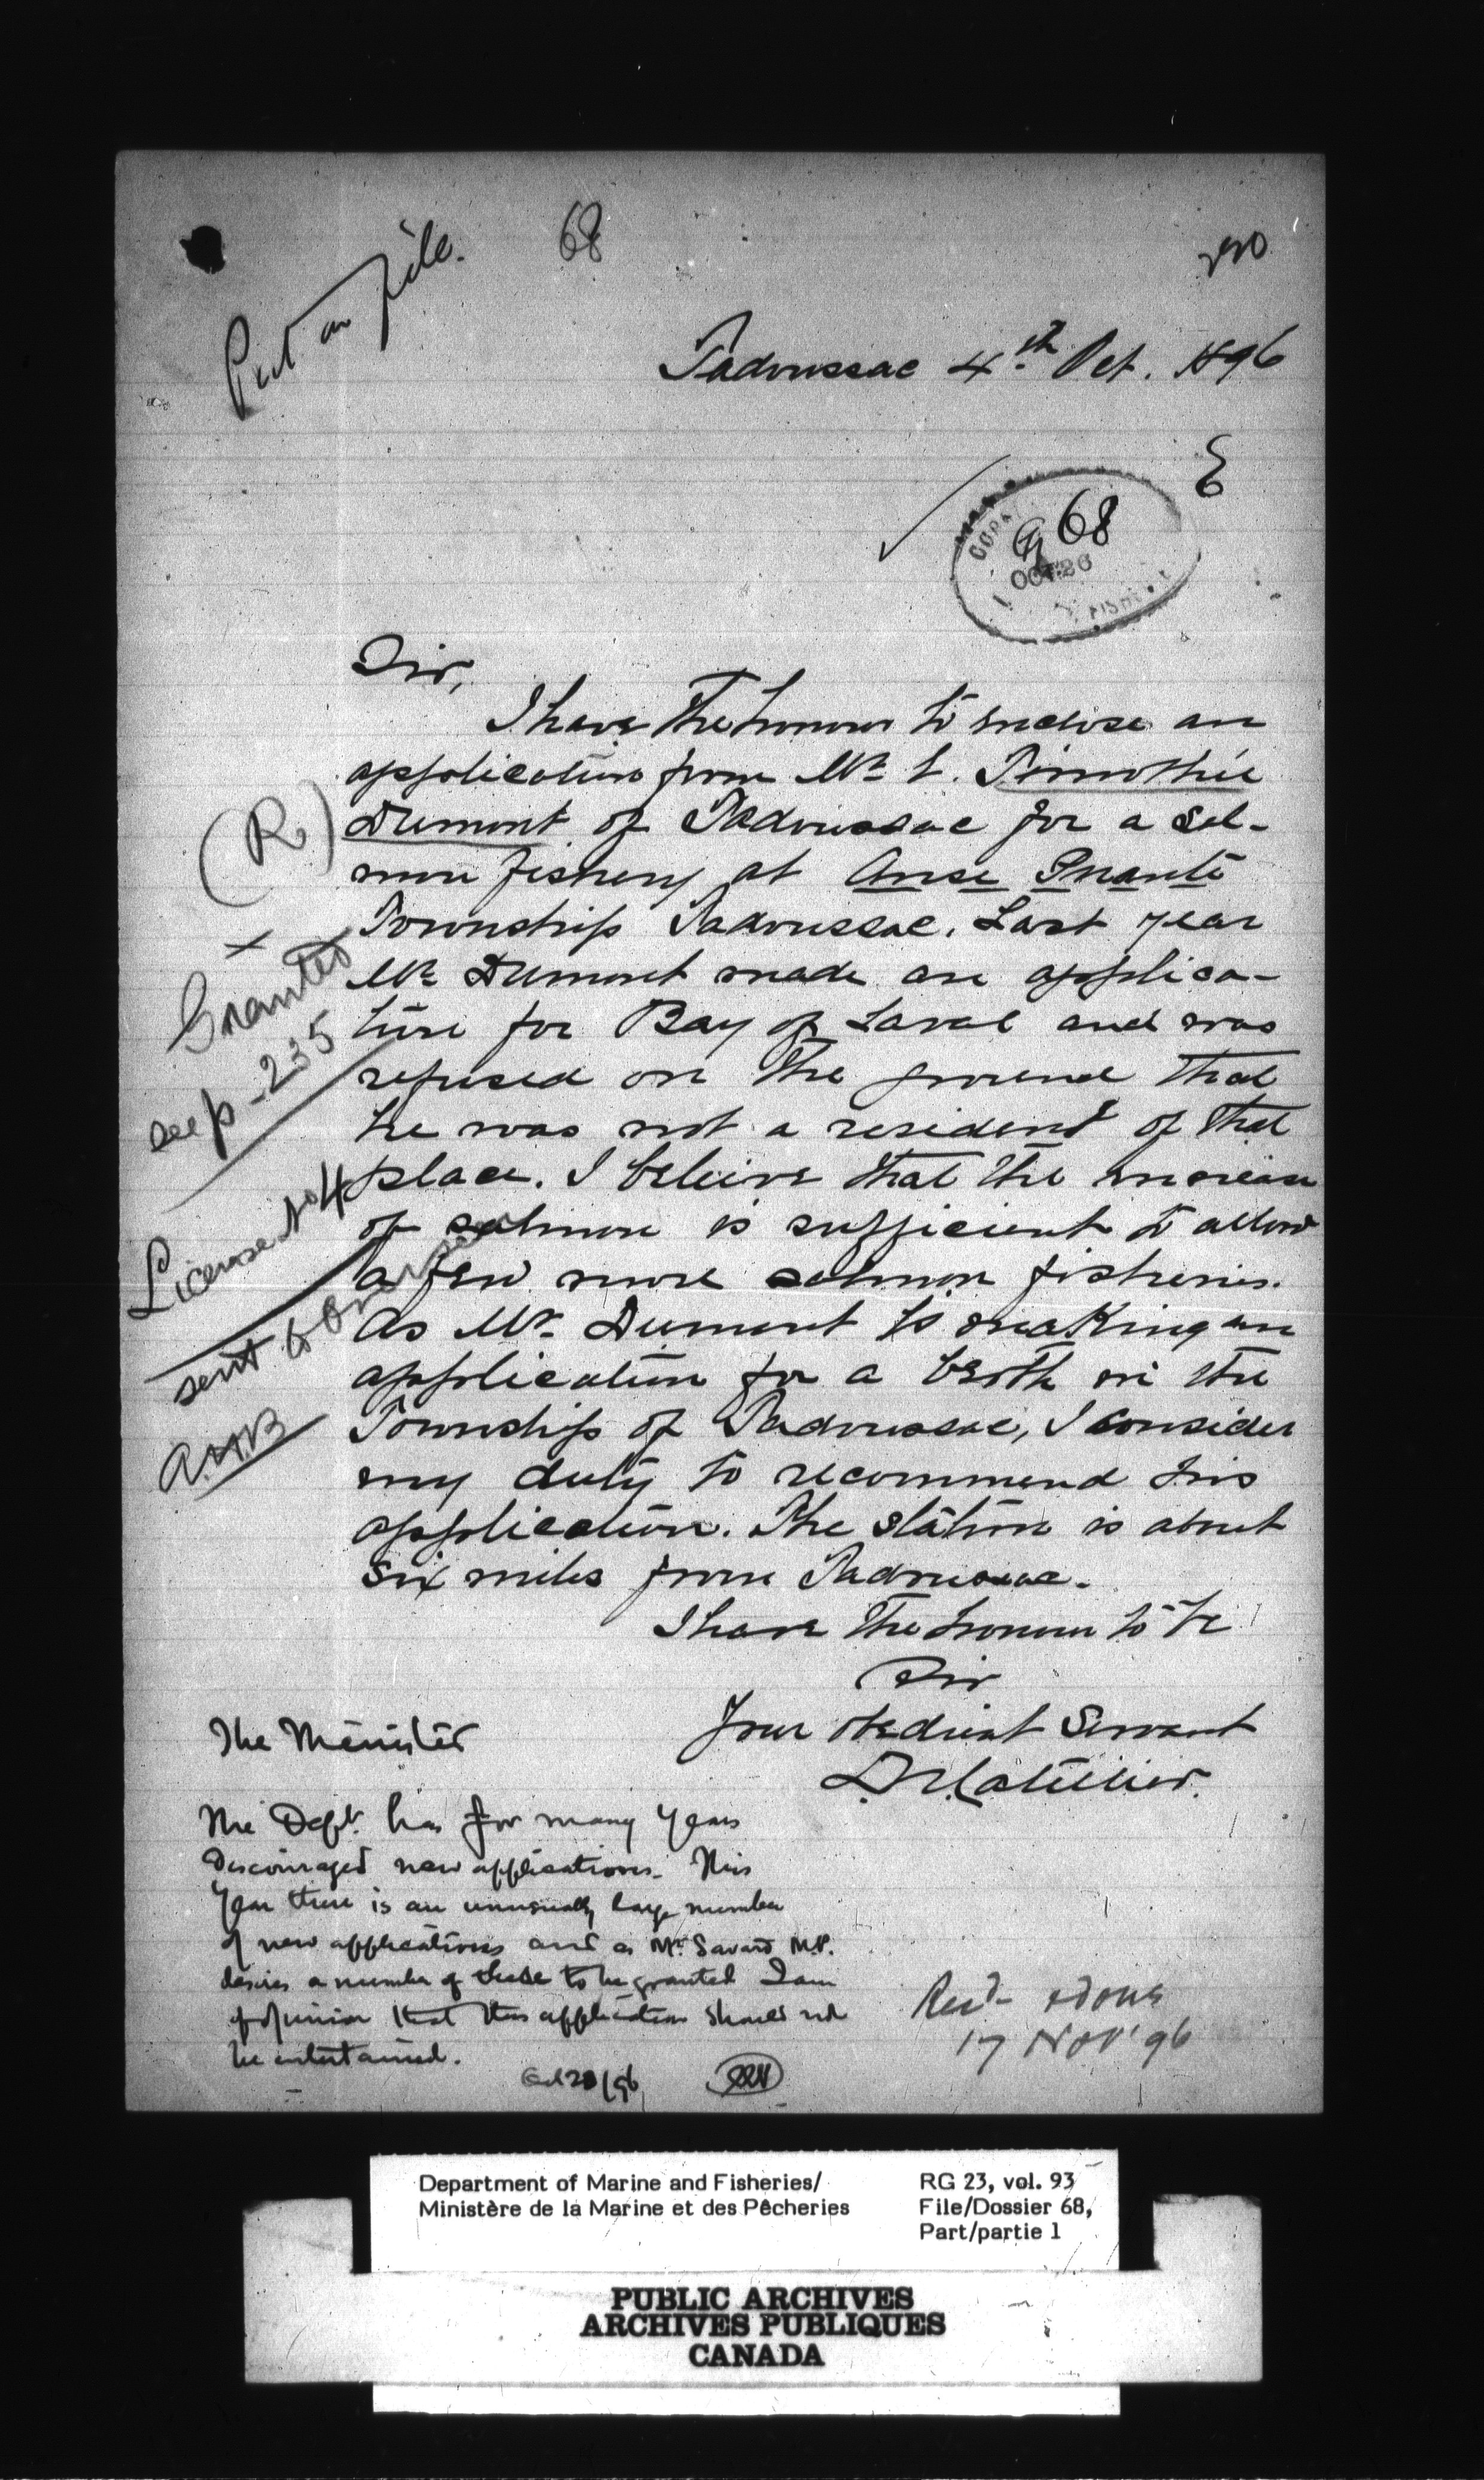 Put on file.
68
220
Tadoussac 4th Oct. 1896
E
68
OCT 26
Sir,
I have the honour to enclose an
application from Mr L. Timothée
Dumont of Tadoussac for a sal-
mon fishery at Anse
Township Tadoussac. Last year
Mr Dumont made an applica-
tion for Bay of Laval and was
refused on the ground that
he was not a resident of that
place. I beleive that the increase
of salmon is sufficient to allow
a few more salmon fisheries.
As Mr. Dumont is making an
application for a berth in the
Township of Tadoussac, I consider
my duty to recommend his
application. The station is about
six miles from Tadoussac.
I have the honour to be
Sir
Your obedient Servant
(R)
x
Granted
see p-235
License No 4
sent to
The Minister
The Dept. has for many years
discouraged new applications. This
year there is an unusually large number
of new applications and as Mr. Savard M.P.
desires a number of these to be granted I am
of opinion that this application should not
be entertained.
Oct 28/96
17 Nov '96
Department of Marine and Fisheries/
Ministère de la Marine et des Pêcheries
RG 23, vol. 93
File/Dossier 68,
Part/partie 1
PUBLIC ARCHIVES
ARCHIVES PUBLIQUES
CANADA